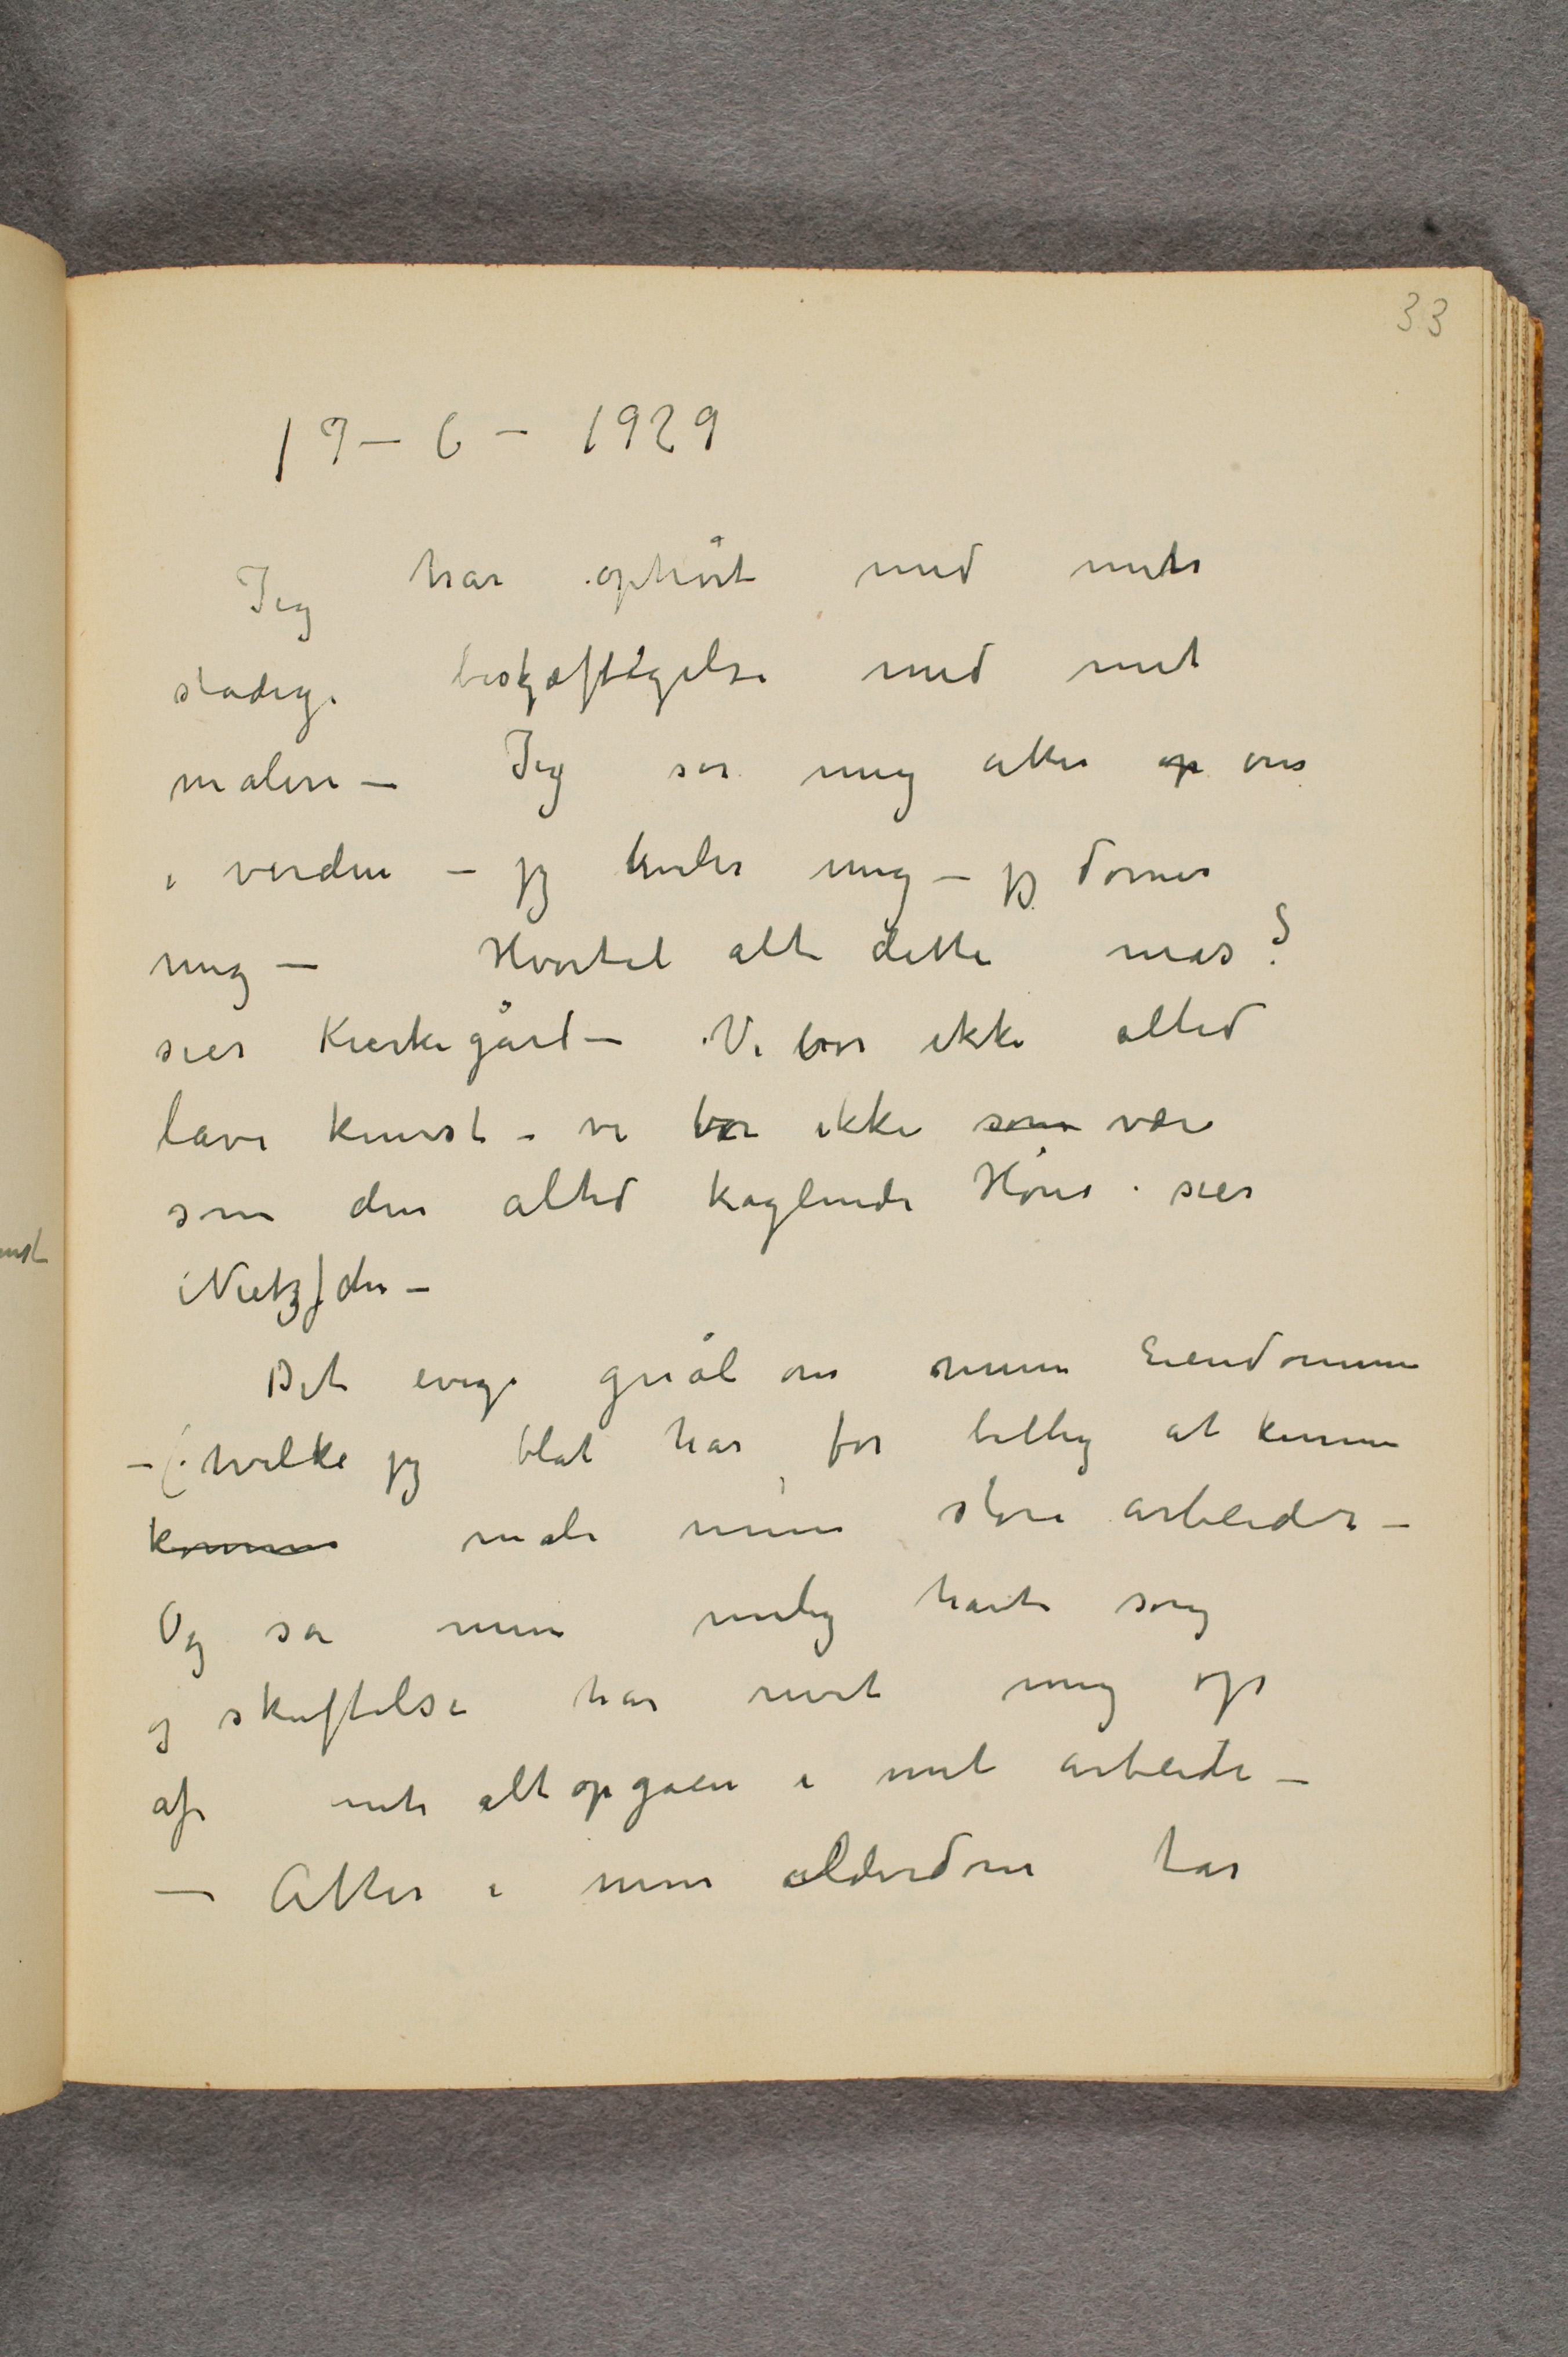 33
19 – 6 – 1929
Jeg har ophørt med mit
stadige beskjæftigelse med mit
maleri – Jeg ser mig atter op om
i verden – jeg hviler mig – jeg dovner
mig – Hvortil alt dette mas?
sier Kierkegård – Vi bør ikke altid
lave kunst – vi bør ikke som være
som den altid kaglende Høne. sier
Nietzsche –
Det evige gnål om mine Eiendomme
– (hvilke jeg blot har for billig at kunne
komme male mine store arbeider –
Og så min nylig havte sorg
og skuffelse har revet mig op
af mit alt opgåen i mit arbeide –
– Atter i min alderdom har